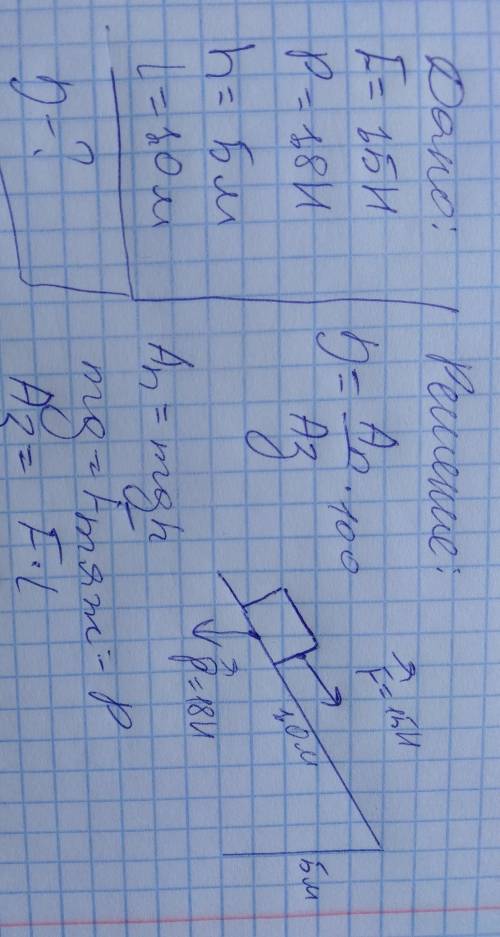 Дано:
F = 15 Н
P = 18 Н
h = 5 м
l = 10 м
η - ?
Решение:
η = Aп / Aз · 100
Aп = mgh
mg = Fтяж = P
Aз = F · l
F = 15 Н
10 м
P = 18 Н
5 м